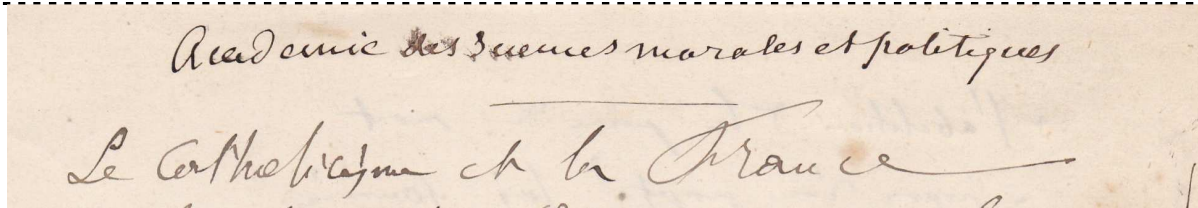 Academie des Sciences morales et politiques
Le Catholicisme et la France